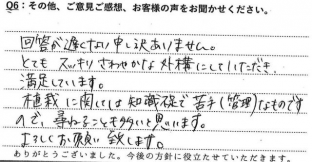 Q6：その他、ご意見ご感想、お客様の声をお聞かせください。
回答が遅くなり申し訳ありません。
とても スッキリ さわやかな外構にしていただき、
満足しています。
植栽に関しては知識ｾﾞﾛで苦手(管理)なものです
ので、尋ねることも多いと思います。
よろしくお願い致します。
ありがとうございました。今後の方針に役立たせていただきます。